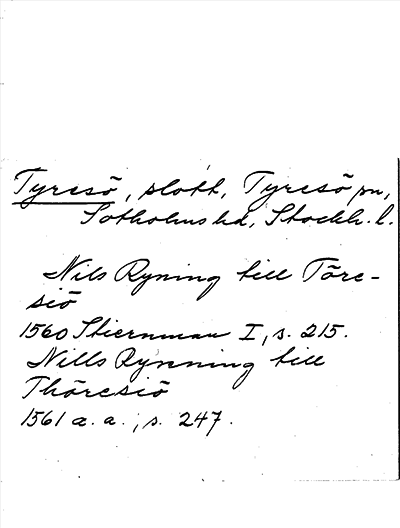 Tyresö, slott, Tyresö sn,
Sotholms hd, Stockh. l.
Nils Ryning till Töre-
siö
1560 Stiernman I, s. 215.
Nills Rynning till
Thöresiö
1561 a. a., s. 247.